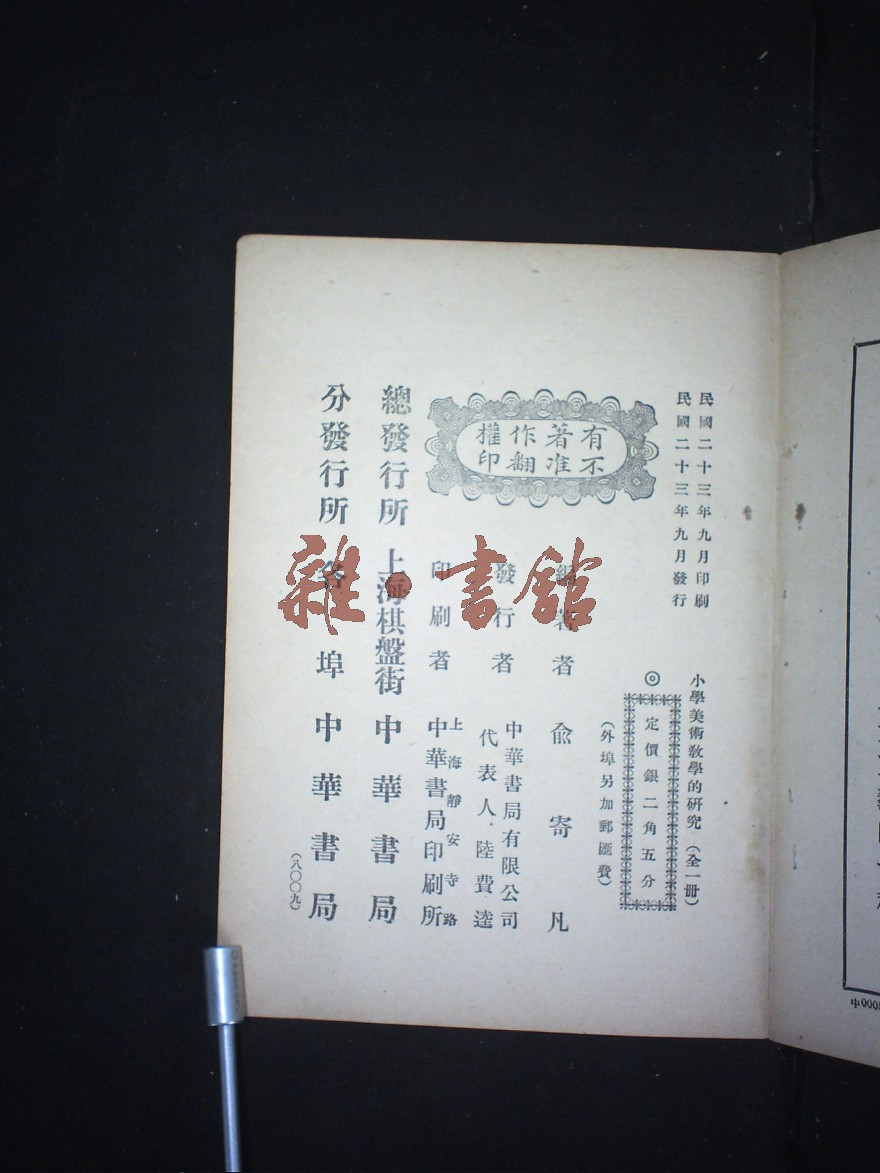 民國二十三年九月印刷
民國二十三年九月發行
有著作權
不准翻印
小學美術教學的研究（全一冊）
◎定價銀二角五分
（外埠另加郵匯費）
編著者 俞寄凡
發行者 中華書局有限公司
代表人．陸費逵
印刷者 上海靜安寺路
中華書局印刷所
總發行所 上海棋盤街 中華書局
分發行所 各埠 中華書局
（八〇〇九）
雜·書館